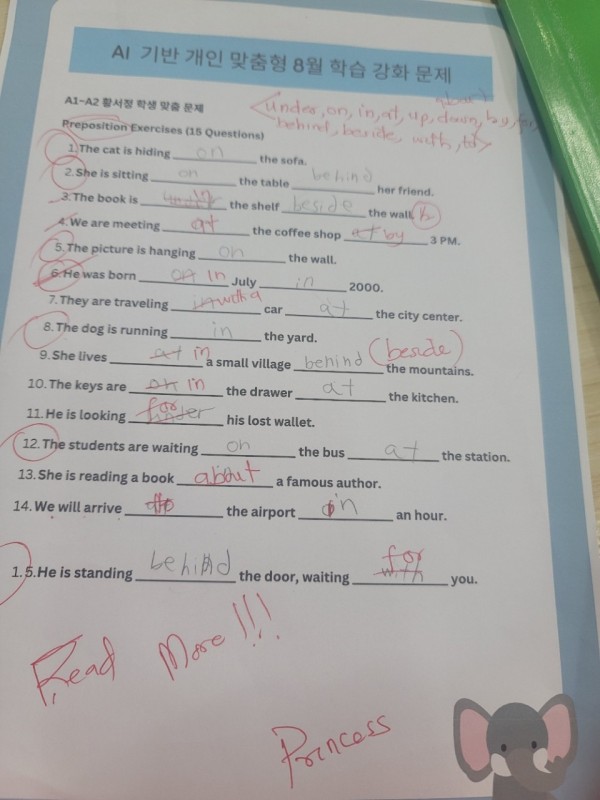 AI 기반 개인 맞춤형 8월 학습 강화 문제
A1-A2 황서정 학생 맞춤 문제
about
<under, on, in, at, up, down, by, for,
behind, beside, with, to>
Preposition Exercises (15 Questions)
1.The cat is hiding on the sofa.
2.She is sitting on the table behind her friend.
3.The book is in the shelf beside the wall.
4.We are meeting at the coffee shop at by 3 PM.
5.The picture is hanging on the wall.
6.He was born on in July in 2000.
7.They are traveling in with a car at the city center.
8.The dog is running in the yard.
9.She lives at in a small village behind (beside) the mountains.
10.The keys are on in the drawer at the kitchen.
11.He is looking under for his lost wallet.
12.The students are waiting on the bus at the station.
13.She is reading a book about a famous author.
14.We will arrive to the airport in an hour.
15.He is standing behind the door, waiting with for you.
Read More!!!
Princess